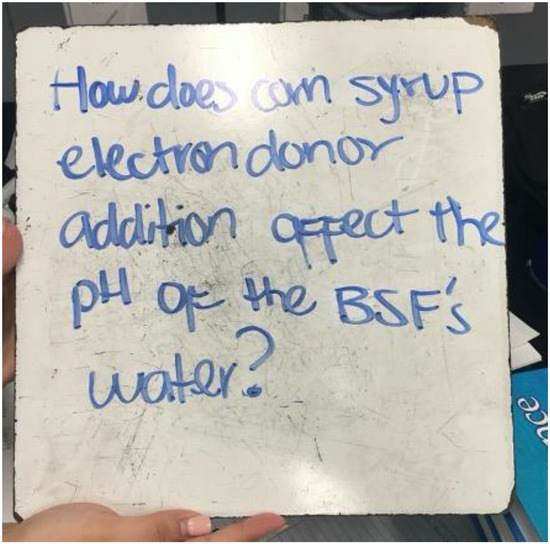 How does corn syrup
electron donor
addition affect the
pH of the BSF's
water?
nce